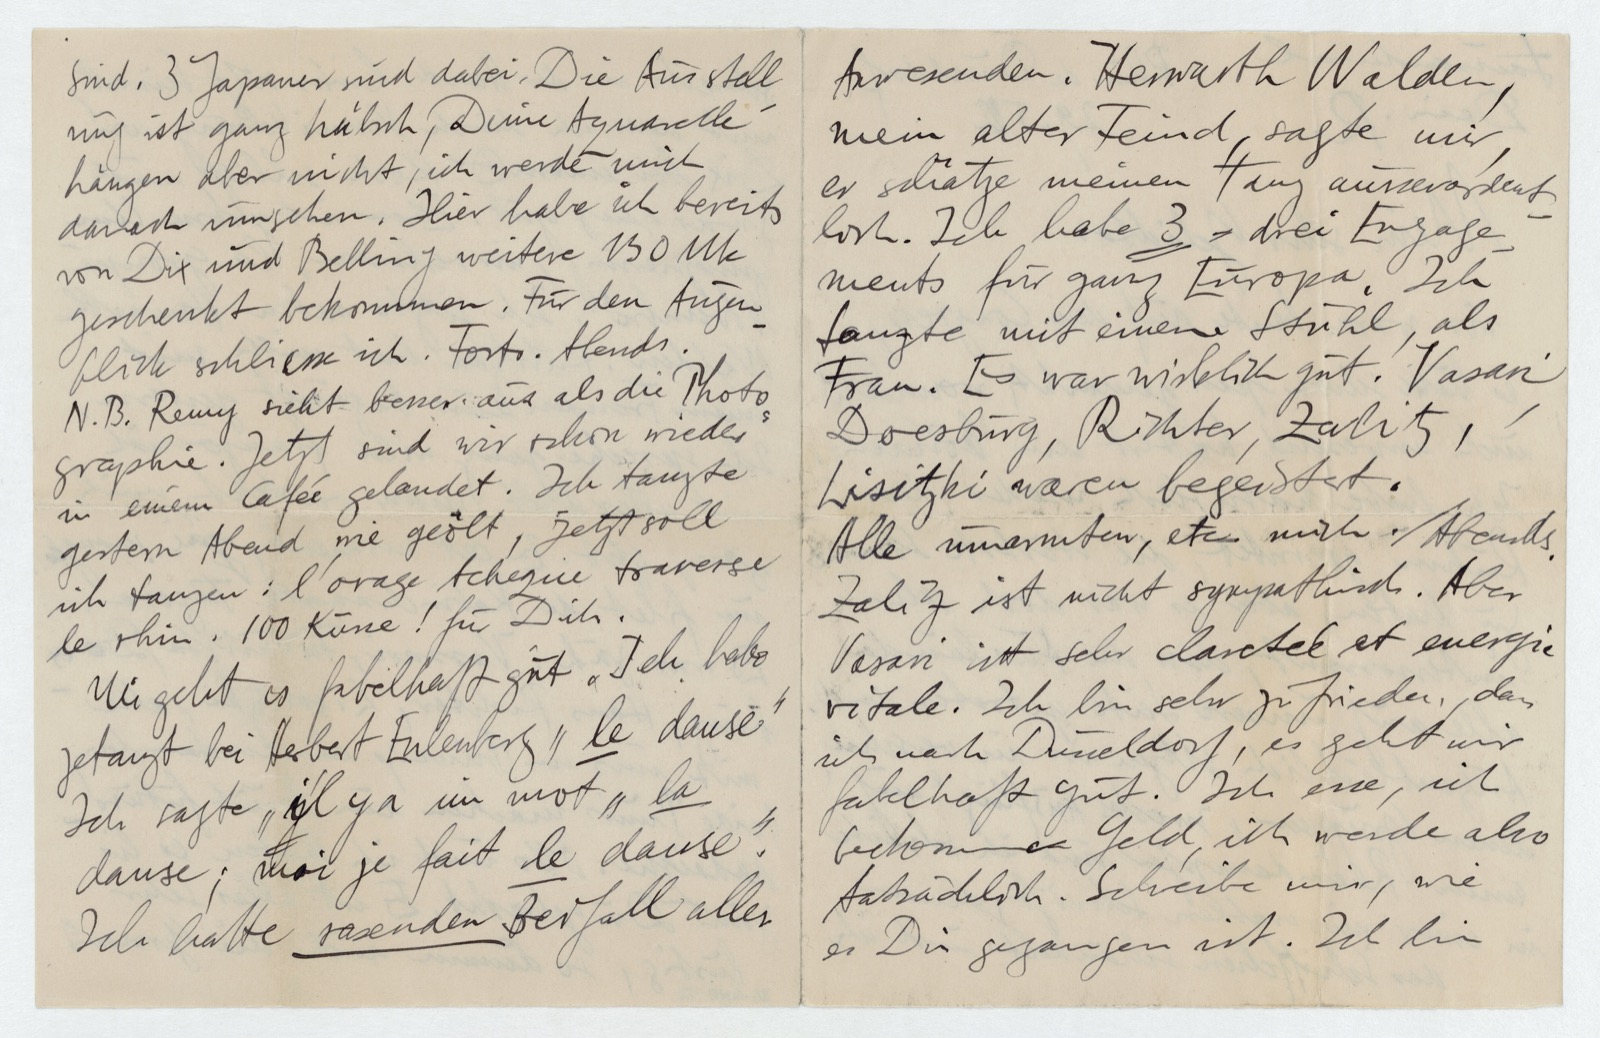 sind. 3 Japaner sind dabei. Die Ausstell
ung ist ganz hübsch, Deine Aquarelle
hängen aber nicht, ich werde mich
danach umsehen. Hier habe ich bereits
von Dix und Belling weitere 150 Mk
geschenkt bekommen. Für den Augen-
blick schliesse ich. Forts. Abends.
N.B. Remy sieht besser aus als die Photo
graphie. Jetzt sind wir schon wieder
in einem Cafée gelandet. Ich tanzte
gestern Abend wie geölt, jetzt soll
ich tanzen: l'orage tcheque traverse
le rhin. 100 Küsse! für Dich.
Mir geht es fabelhaft gut. Ich habe
getanzt bei Herbert Eulenberg „le danse"
Ich sagte „il y a un mot „la
danse; moi je fait le danse".
Ich hatte rasenden Beifall aller
Anwesenden. Herwarth Walden,
mein alter Feind, sagte mir,
er schätze meinen Tanz ausserordent-
lich. Ich habe 3 = drei Engage-
ments für ganz Europa. Ich
tanzte mit einem Stuhl, als
Frau. Es war wirklich gut! Vasari
Doesburg, Richter, Zalitz,
Lisitzki waren begeistert.
Alle umarmten, etc mich. / Abends.
Zalitz ist nicht sympathisch. Aber
Vasari ist sehr et energie
vitale. Ich bin sehr zufrieden, dass
ich nach Düsseldorf, es geht mir
fabelhaft gut. Ich esse, ich
bekomme Geld, ich werde also
tatsächlich. Schreibe mir, wie
es Dir gegangen ist. Ich bin